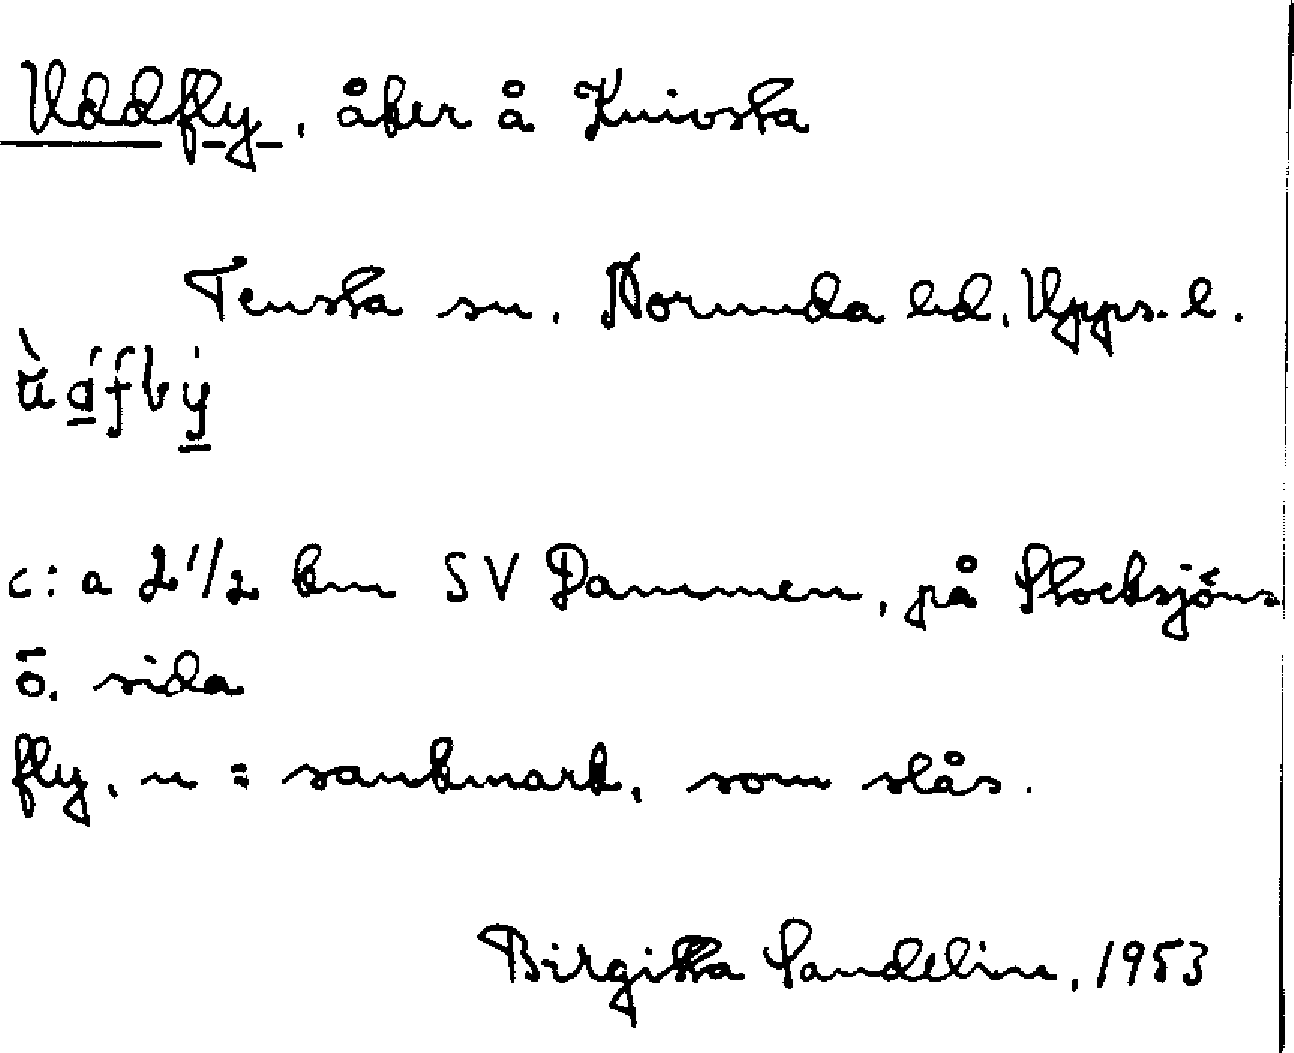 Uddfly, åker å Knivsta
Tensta sn. Norunda hd. Upps. l.
c:a 2 1/2 km SV Dammen, på Stocksjöns
ö. sida
fly, n = sankmark, som slås.
Birgitta Sandelin, 1953